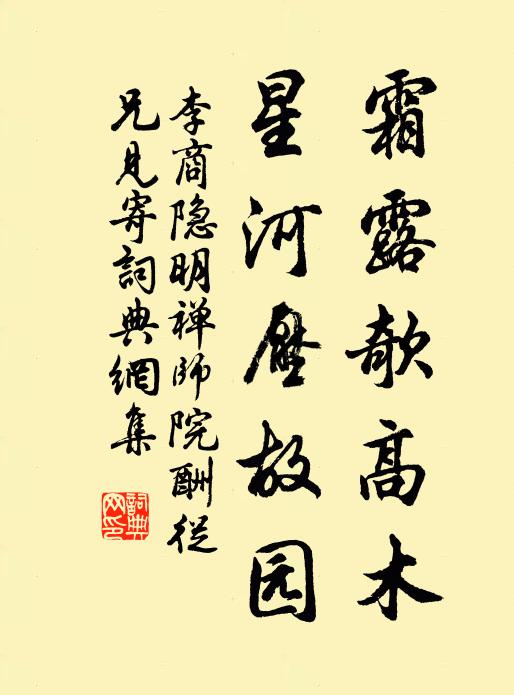 霜露欹高木
星河压故园
李商隐明禅师院酬從
兄見寄詞典網集
詞典
网印